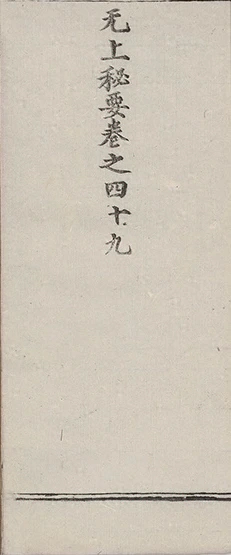 无上秘要卷之四十九